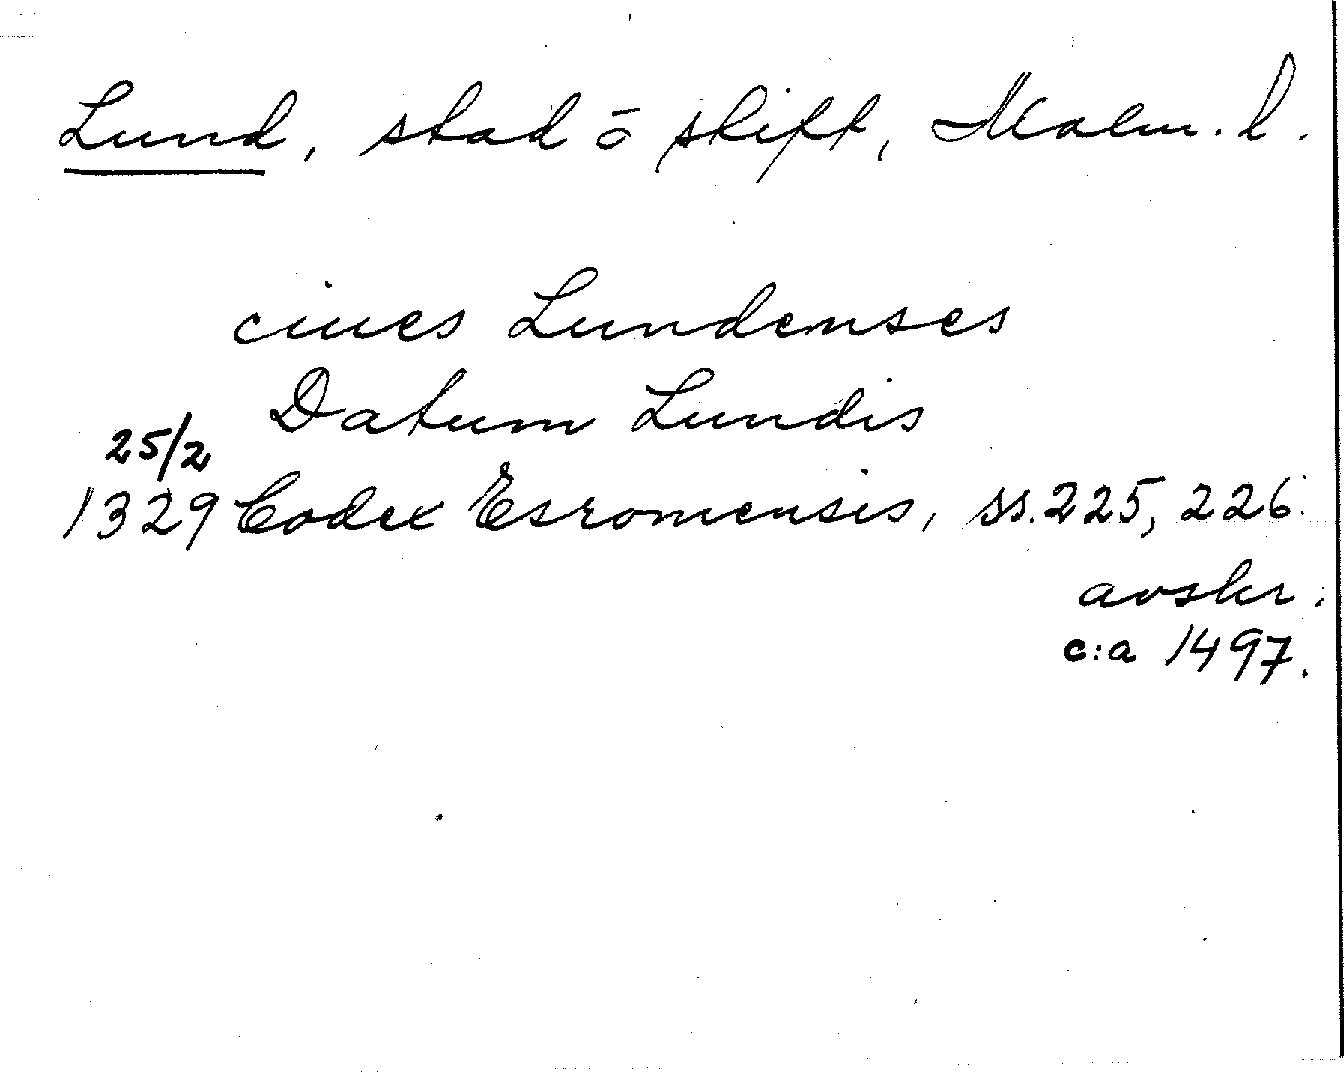 Lund, stad ō skift, Malm. l.
ciues Lundenses
Datum Lundis
25/2
1329 Codex Esromensis, ss. 225, 226.
avskr.
c:a 1497.